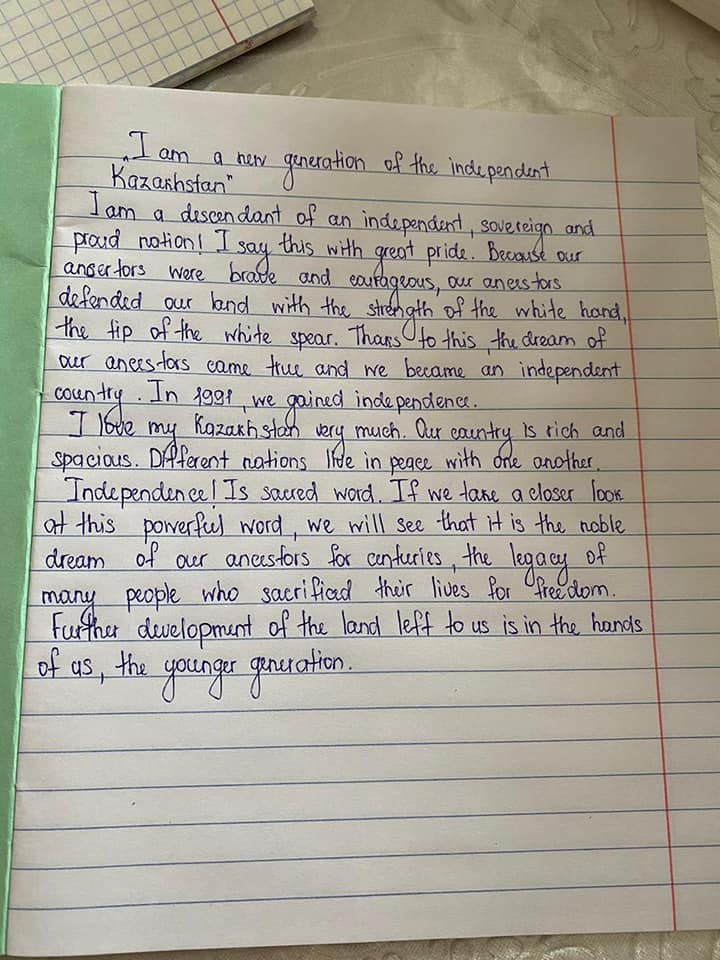 „I am a new generation of the independent
Kazakhstan"
I am a descendant of an independent, sovereign and
proud nation! I say this with great pride. Because our
ancertors were brave and courageous, our ancestors
defended our land with the strength of the white hand,
the tip of the white spear. Thans to this, the dream of
our ancestors came true and we became an independent
country. In 1991, we gained independence.
I love my Kazakhstan very much. Our country is rich and
spacious. Different nations live in peace with one another.
Independence! Is sacred word. If we take a closer look
at this powerful word, we will see that it is the noble
dream of our ancestors for centuries, the legacy of
many people who sacrificed their lives for freedom.
Further development of the land left to us is in the hands
of us, the younger generation.